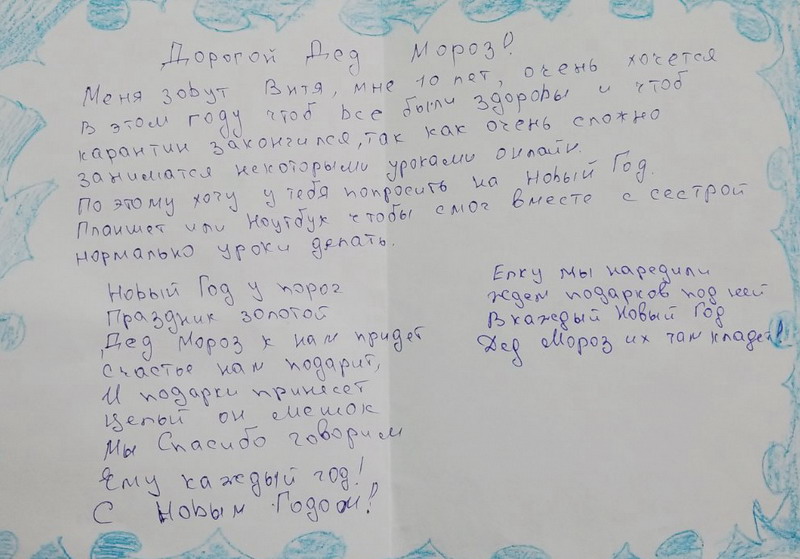 Дорогой Дед Мороз!
Меня зовут Витя, мне 10 лет, очень хочется
в этом году чтоб все были здоровы и чтоб
карантин закончился, так как очень сложно
заниматся некоторыми уроками онлайн.
По этому хочу у тебя попросить на Новый Год.
Планшет или Ноутбук чтобы смог вместе с сестрой
нормально уроки делать.
Новый Год у порог
Праздник золотой
Дед Мороз к нам придет
Счастье нам подарит,
И подарки принесет
Целый он мешок
Мы Спасибо говорим
Ему каждый год!
С Новым Годом!
Елку мы наредили
ждем подарков под ней
В каждый Новый Год
Дед Мороз их там кладет!